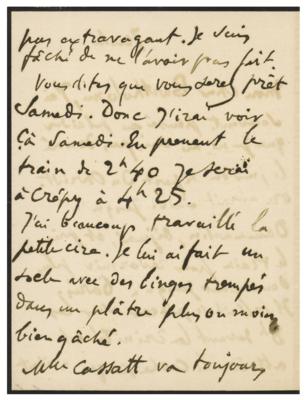 pas extravagant. Je suis
fâché de ne l'avoir pas fait.
Vous dites que vous serez prêt
Samedi. Donc J'irai voir
çà Samedi. En prenent le
train de 2h40 Je serai
à Crépy à 4h25.
J'ai beaucoup travaillé la
petite cire. Je lui ai fait un
socle avec des linges trempés
dans un plâtre plus ou moins
bien gâché.
Mlle Cassatt va toujours